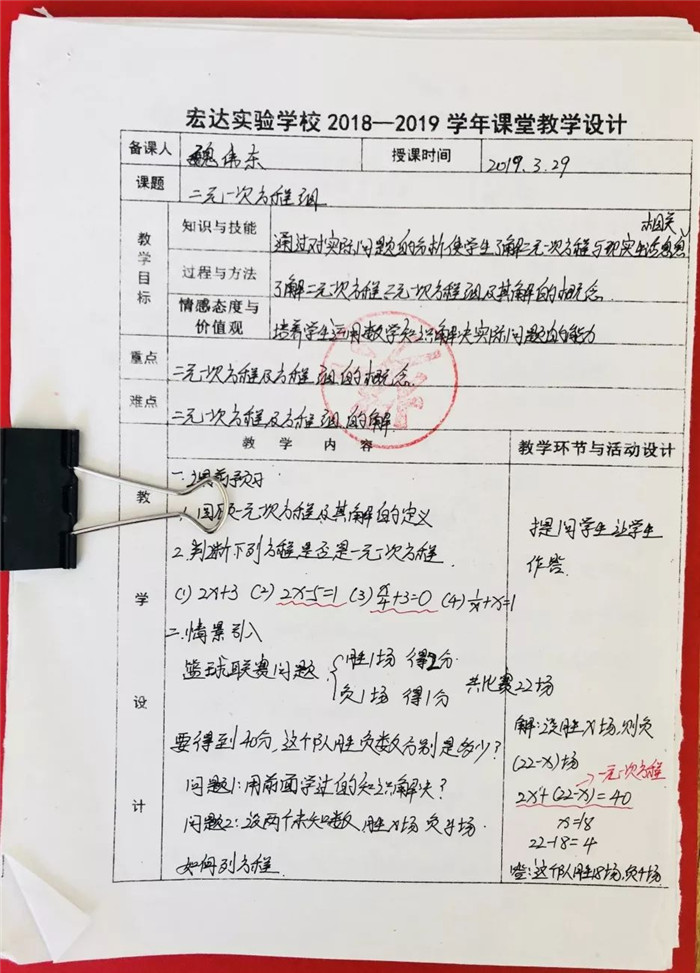 宏达实验学校2018—2019学年课堂教学设计
备课人 魏伟东 授课时间 2019.3.29
课题 二元一次方程组
教学目标
知识与技能 通过对实际问题的分析使学生了解二元一次方程与现实生活息息相关
过程与方法 了解二元一次方程二元一次方程组及其解的概念.
情感态度与价值观 培养学生运用数学知识解决实际问题的能力
重点 二元一次方程及方程组的概念.
难点 二元一次方程及方程组的解.
教学内容 教学环节与活动设计
教学设计
一.课前预习
1.回顾一元一次方程及其解的定义
2.判断下列方程是否是一元一次方程.
(1) 2x+3 (2) 2x-5=1 (3) x/4+3=0 (4) 1/x+x=1
二.情景引入
篮球联赛问题. { 胜1场 得2分
负1场 得1分 共比赛22场
要得到40分,这个队胜负数分别是多少?
问题1:用前面学过的知识解决?
问题2:设两个未知数,胜x场 负y场.
如何列方程.
提问学生让学生
作答.
解:设胜x场,则负
(22-x)场
一元一次方程
2x+(22-x)=40
x=18
22-18=4
答:这个队胜18场,负4场.